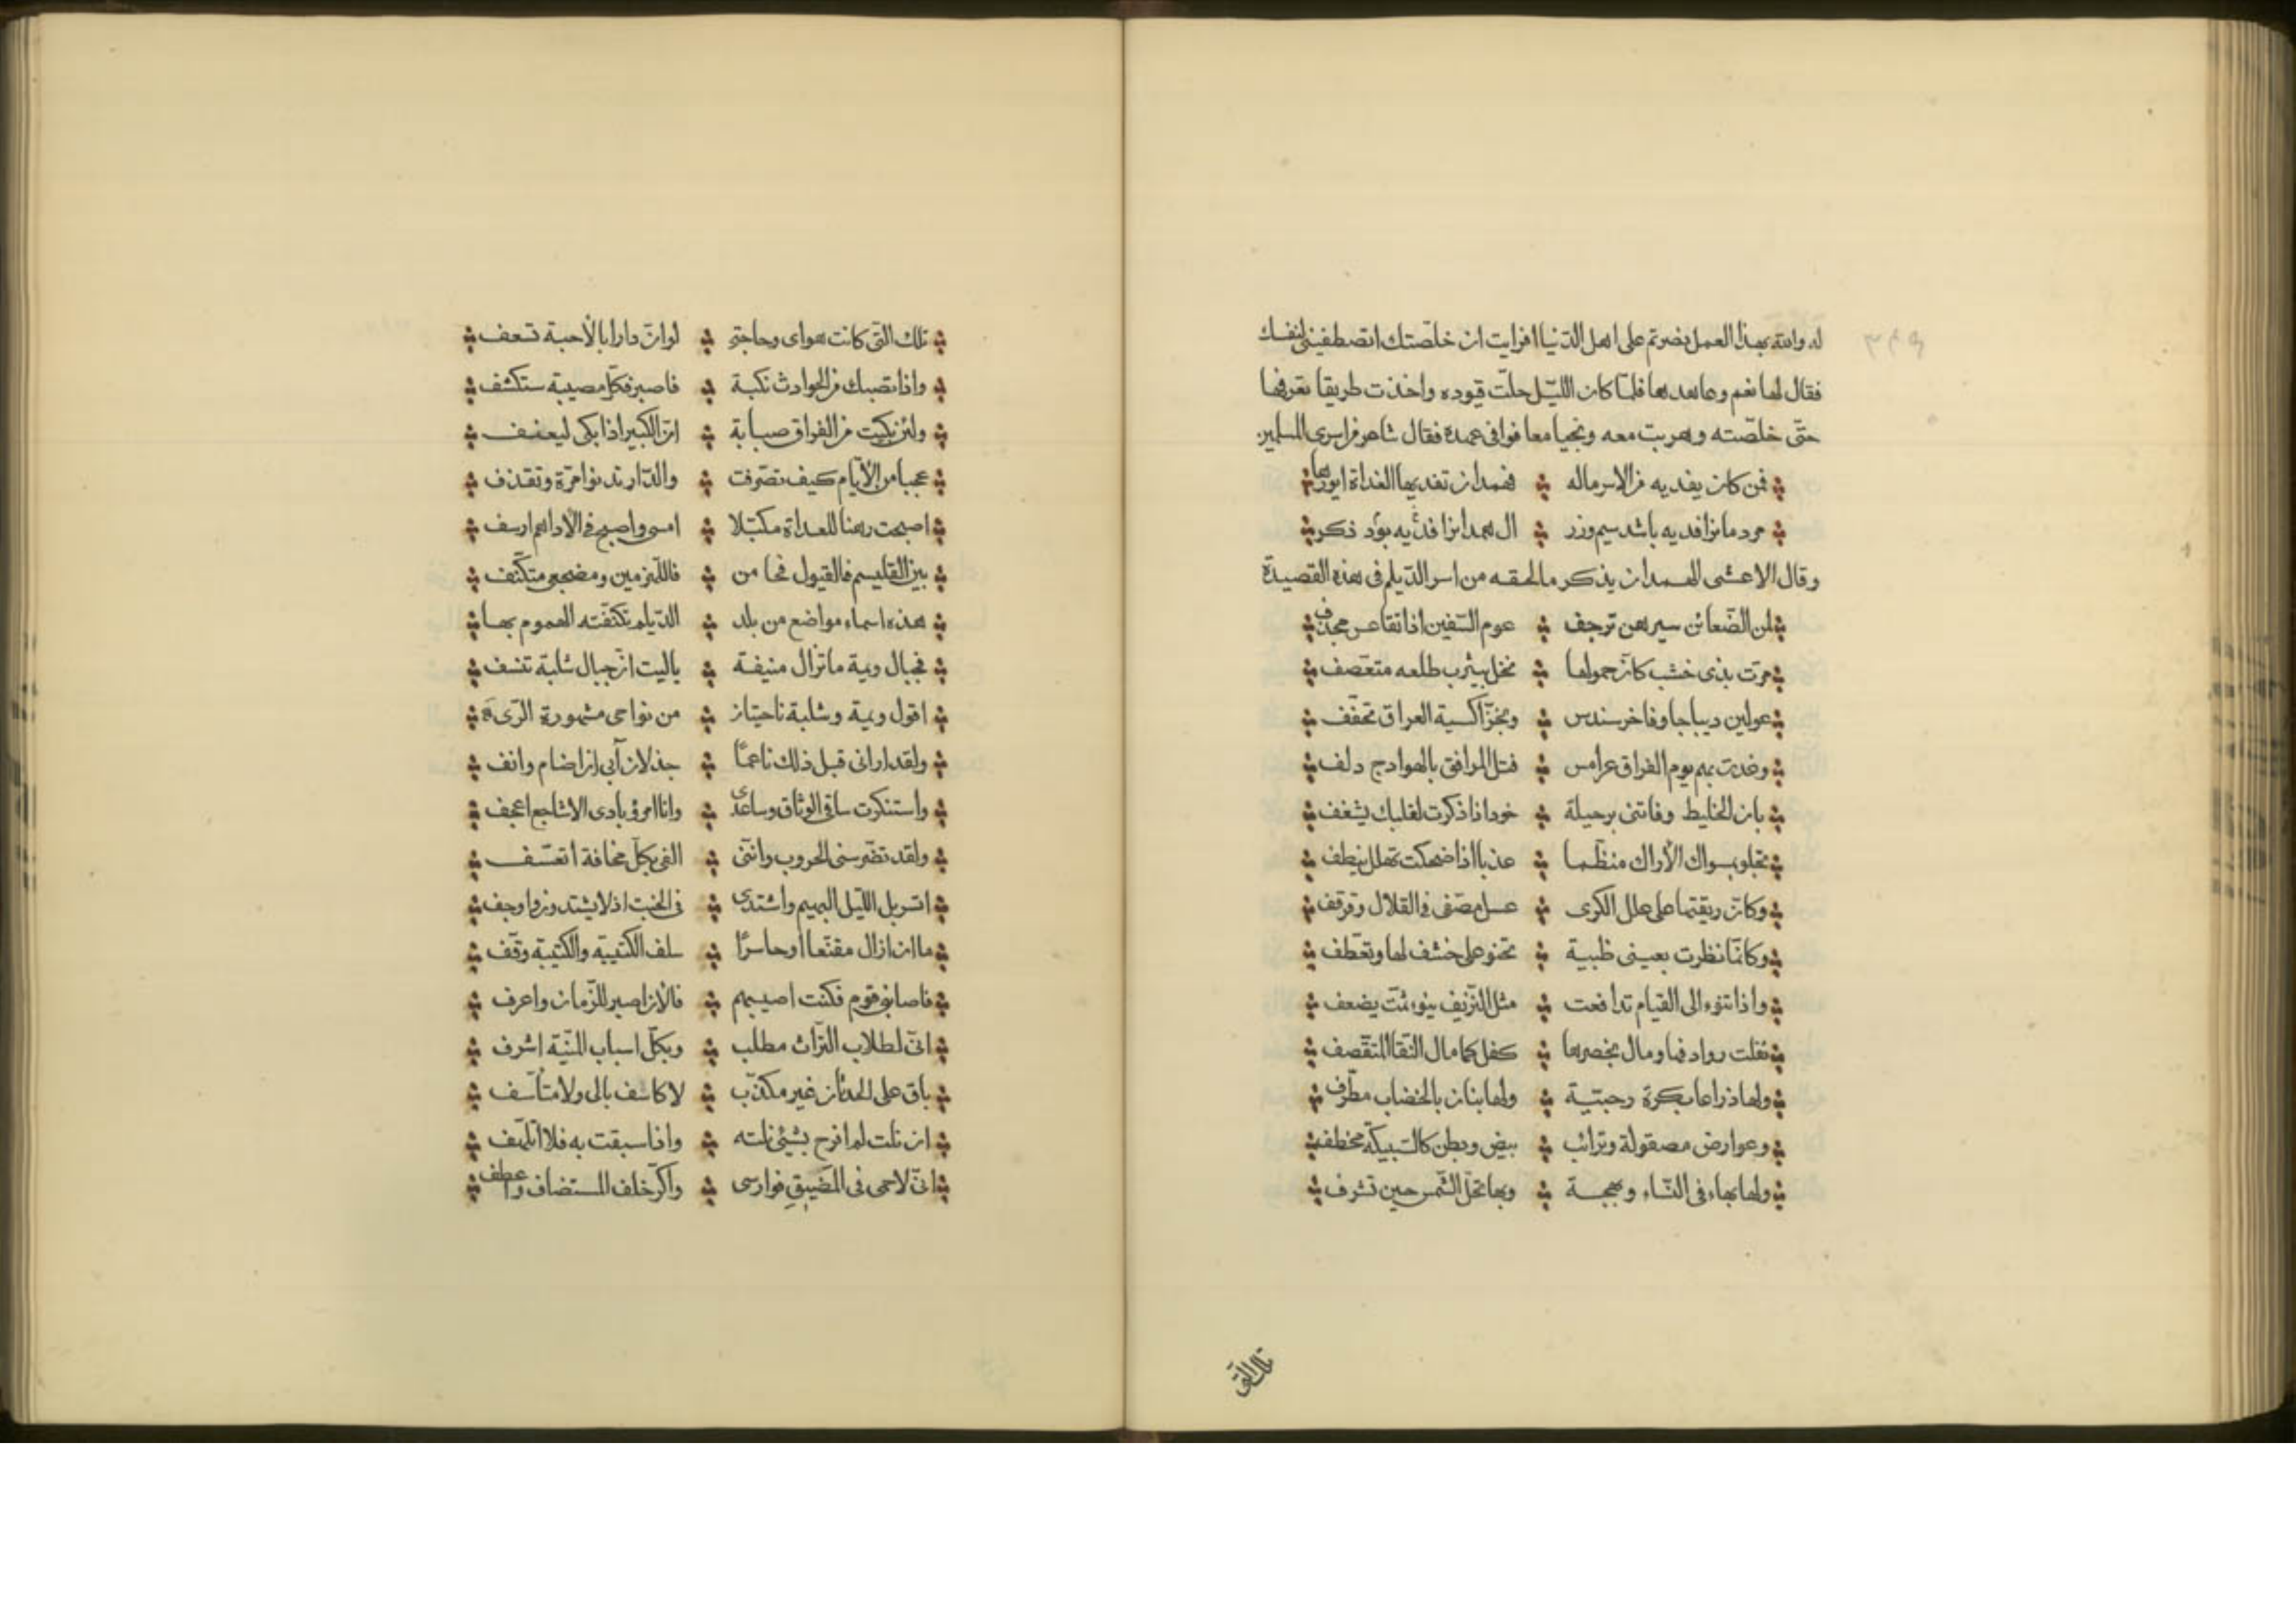 له والله بهذا العمل نضرتم على اهل الدّنيا افرايت ان خلّصتك اتصطفينى لنفسك
فقال لها نعم وعاهدها فلمّا كان اللّيل حلّت قيوده واخذت طريقا تعرفها
حتّى خلّصته وهربت معه ونجيا معا فوافى عمدة فقال شاعر من اسرى المسلمين
فمن كان يفديه من الاسر ماله فهمدان تفديها الغداة ايورها
مرد مانرا فديه باشد سيم وزر ال همدانرا فديه بود ذكر
وقال الاعشى الهمدان يذكر ما لحقه من اسر الدّيلم فى هذه القصيدة
لمن الضّعائن سيرهن ترجف عوم السّفين اذا تقاعس مجدف
مرّت بذى خشب كانّ حمولها نخل بيثرب طلعه متعصف
عولين ديباجا وفاخر سندس وبخزّ اكسية العراق تحفّف
وغدت بهم يوم الفراق عرامس فتل المرافق بالهوادج دلف
بان الخليط وفاتنى برحيله خود اذا ذكرت لقلبك يشغف
تجلو بسواك الأراك منظّما عذبا اذا ضحكت تهلل ينطف
وكانّ ريقتها على علل الكرى عسل مصفّى فى القلال وقرقف
وكانّما نظرت بعينى ظبية تحنو على خشف لها وتعطّف
واذا تنوء الى القيام تدافعت مثل النّزيف ينوء ثمّت يضعف
ثقلت روادفها ومال بخصرها كفل كما مال النّقا المتقصّف
ولها ذراعا بكرة رحبتية ولها بنان بالخضاب مطرّف
وعوارض مصقولة وترائب بيض وبطن كالسّبيكة مخطف
ولها بهاء فى النّساء وبهجة وبها تحلّ الشّمس حين تشرف
تلك التى
تلك التّى كانت هواى وحاجتى لو انّ دارا بالأحبة تسعف
واذا تصبك من الحوادث نكبة فاصبر فكلّ مصيبة ستكشف
ولئن بكيت من الفراق صبابة انّ الكبير اذا بكى ليعنف
عجبا من الأيّام كيف تصرّفت والدّار تدنوا مرّة وتقذف
اصبحت رهنا للعداة مكبّلا امسى واصبح فى الأداهم ارسف
بين القليسم فالقيول فحامن فاللّهزمين ومضجعى متكنّف
هذه اسماء مواضع من بلد الدّيلم تكنّفته الهموم بها
فجبال ويمة ماتزال منيفة ياليت انّ جبال شلبة تنسف
اقول ويمة وشلبة ناحيتان من نواحى مشهورة الرّى
ولقد ارانى قبل ذلك ناعما جذلان آبى ان اضام وانف
واستنكرت ساقى الوثاق وساعدى وانا امرؤ بادى الاشاجع اعجف
ولقد تضرّسنى الحروب وانّنى الفى بكلّ مخافة اتعسّف
اتسربل اللّيل البهيم واشتدى فى الخبت اذ لا يشتدون واوجف
ما ان ازال مقنّعا او حاسرًا سلف الكتيبة والكتيبة وقّف
فاصابنى قوم فكنت اصيبهم فالآن اصبر للزّمان واعرف
انّى لطلّاب التّراث مطلب وبكلّ اسباب المنيّة اشرف
باق على الحدثان غير مكذّب لا كاسف بالى ولا متأسّف
ان نلت لم افرح بشيئ نلته واذا سبقت به فلا اتلهّف
انّى لاحمى فى المضيق فوارسى واكرّ خلف المستضاف واعطف